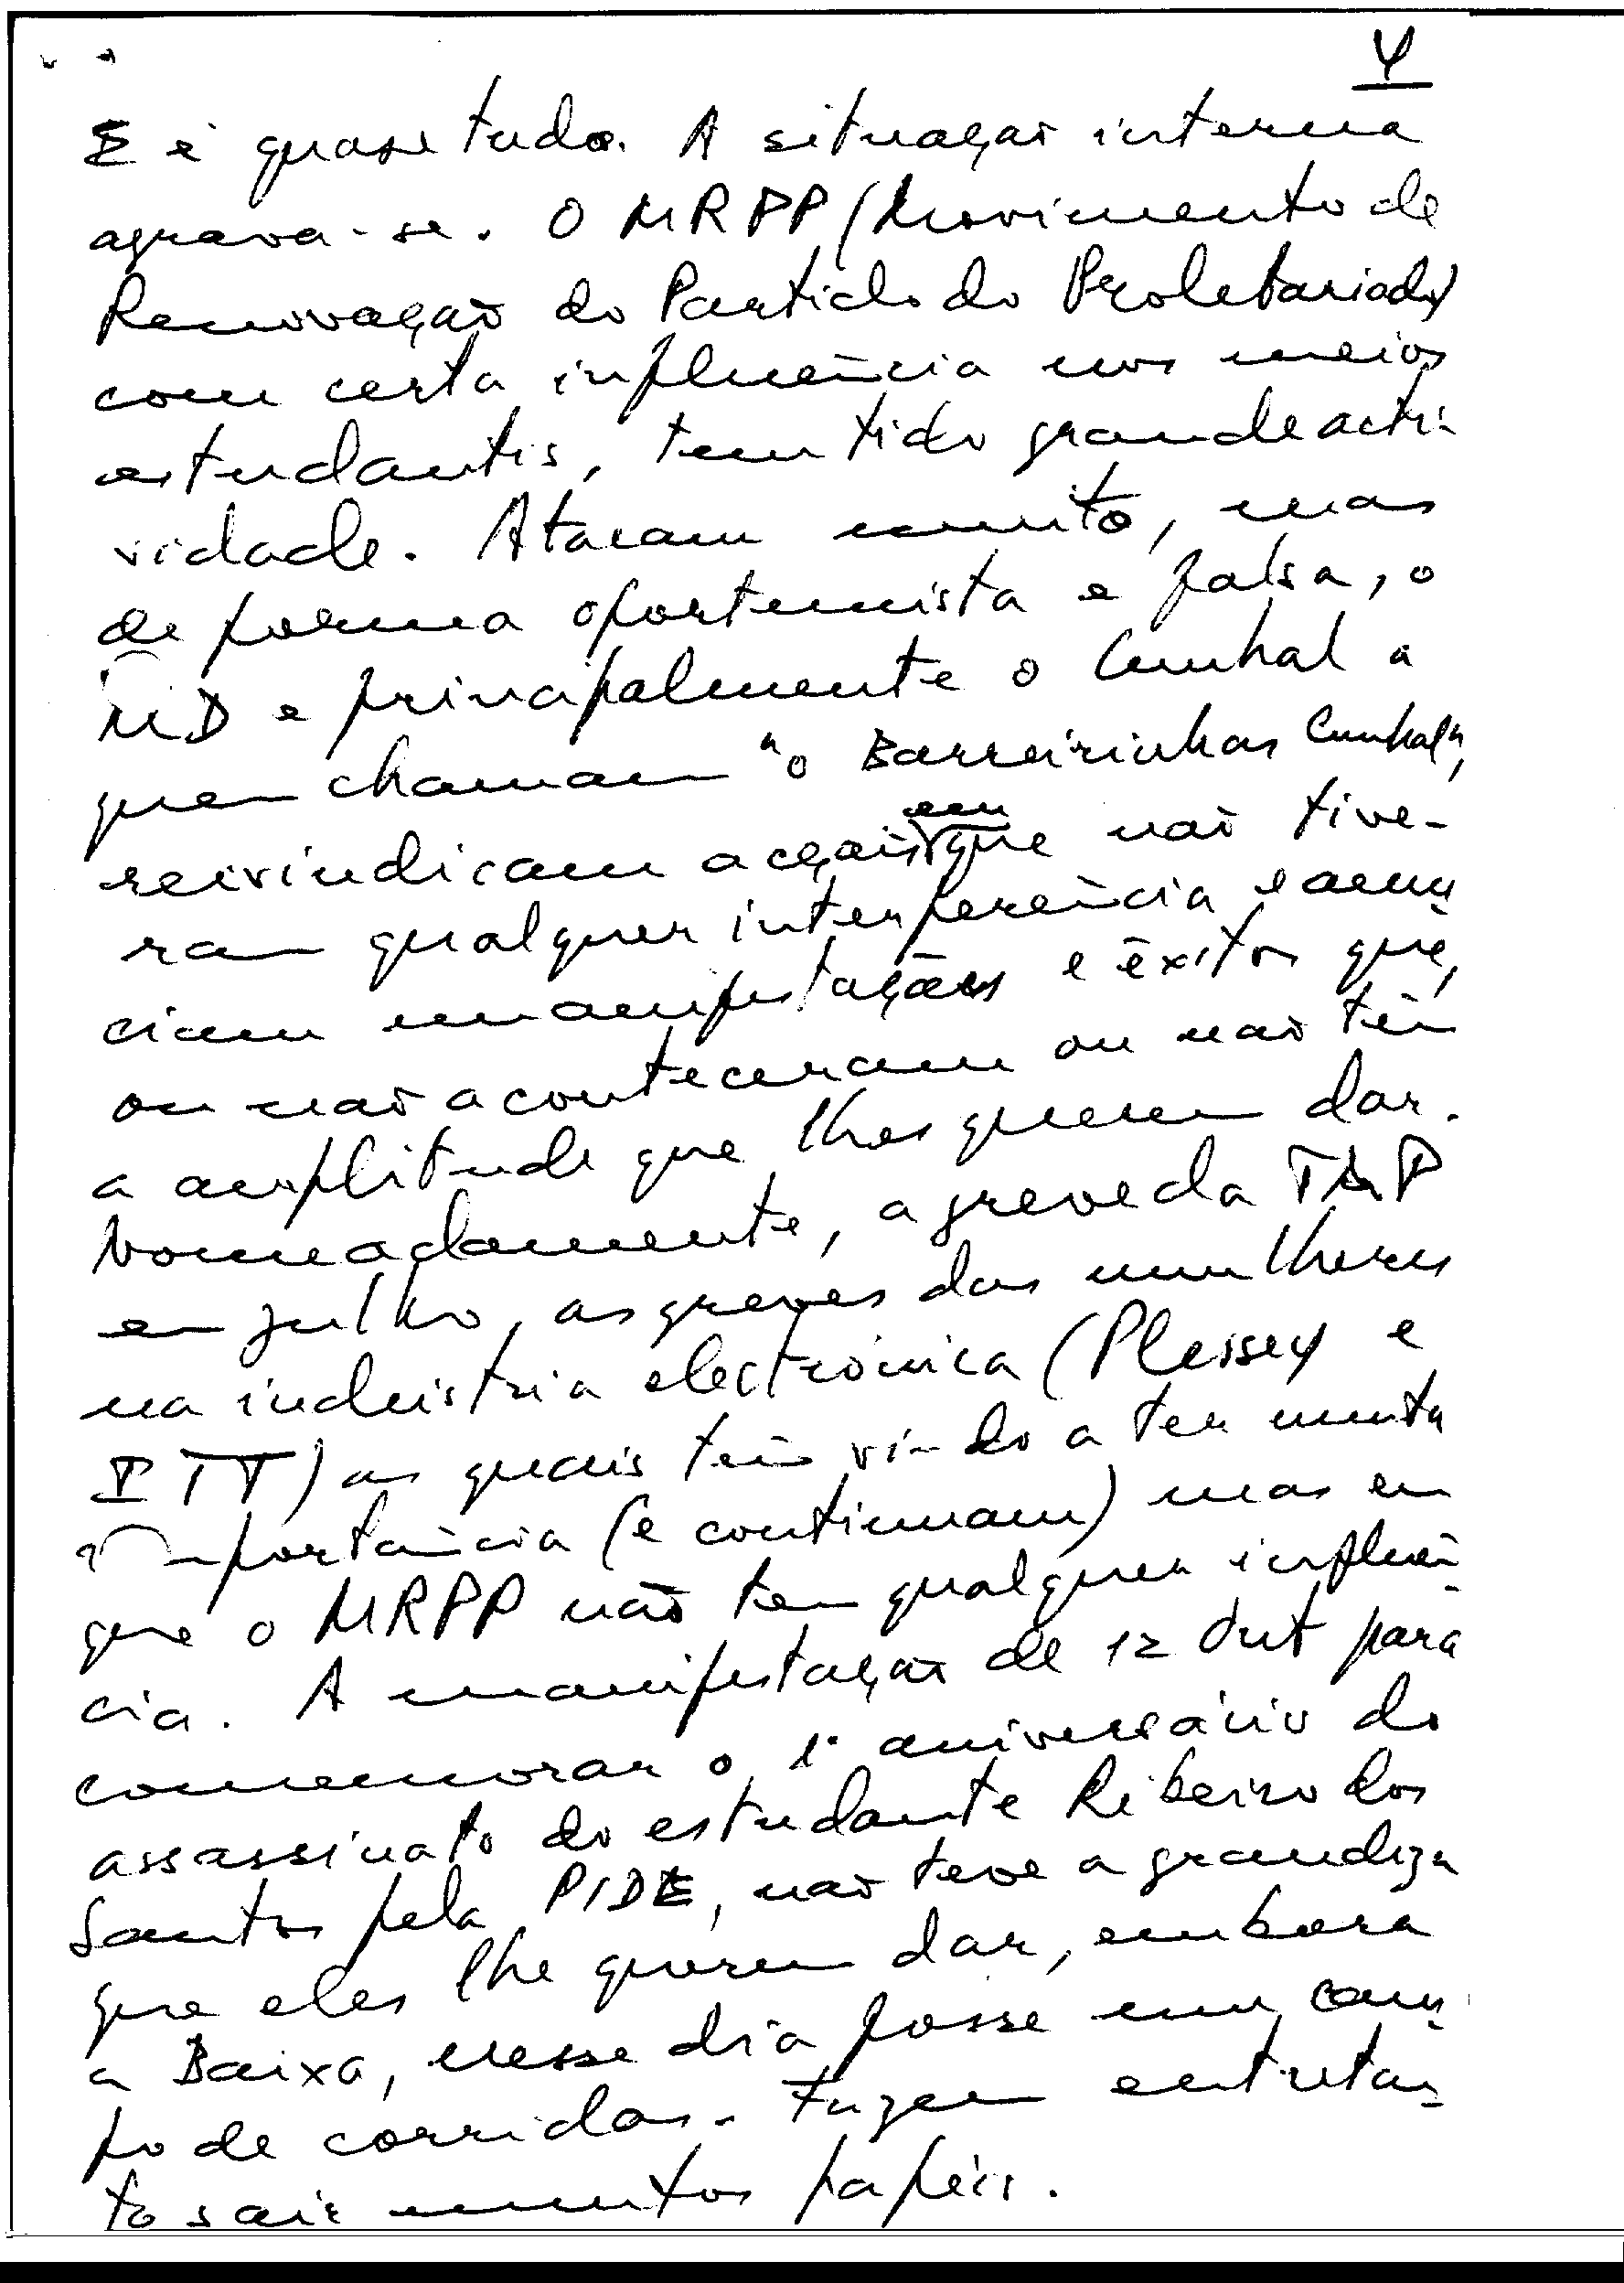 4
E é quase tudo. A situação interna
agrava-se. O MRPP (Movimento de
Renovação do Partido do Proletariado)
com certa influência nos meios
estudantis, tem tido grande acti-
vidade. Atacam muito, mas
de forma oportunista e falsa, o
MD e principalmente o Cunhal a
quem chamam "o Barreirinhas Cunhal",
reivindicam acções em que não tive-
ram qualquer interferência e anun-
ciam manifestações e êxitos que,
ou não aconteceram ou não têm
a amplitude que lhes querem dar.
Nomeadamente, a greve da TAP
em Julho, as greves das mulheres
na indústria electrónica (Plessey e
ITT) as quais têm vindo a ter muita
importância (e continuam) mas em
que o MRPP não tem qualquer influên-
cia. A manifestação de 12 Out para
comemorar o 1º aniversário do
assassinato do estudante Ribeiro dos
Santos pela PIDE, não teve a grandeza
que eles lhe querem dar, embora
a Baixa, nesse dia fosse um cam-
po de corridas. Fazem entretan-
to sair muitos papéis.